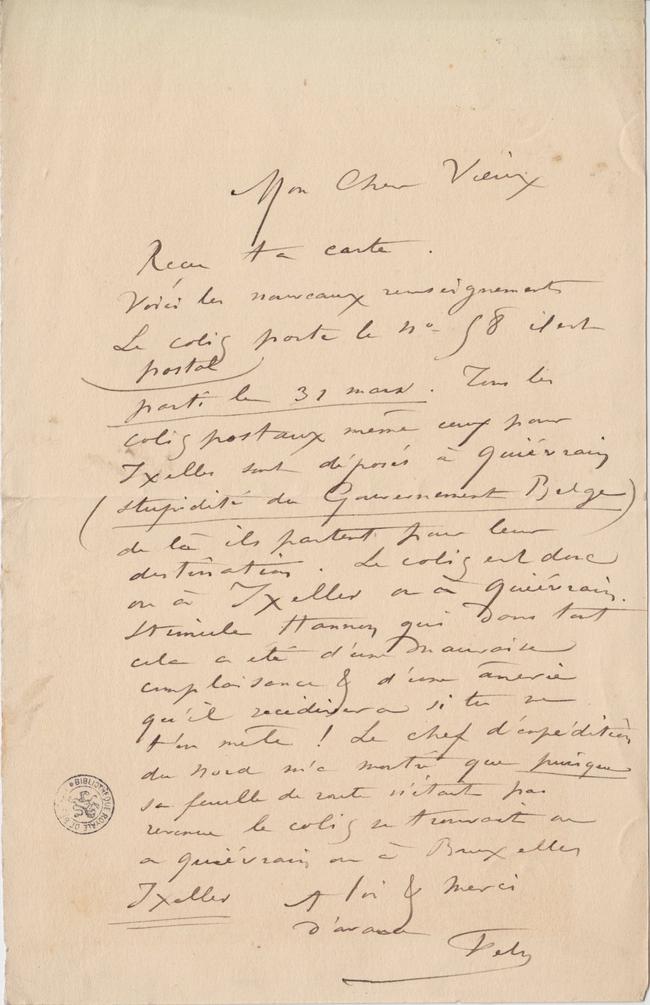 Mon Cher Vieux
Reçu ta carte.
Voici les nouveaux renseignements
Le colis porte le no 58 il est
postal
parti le 31 mars. Tous les
colis postaux même ceux pour
Ixelles sont déposés à Quiévrain
(stupidité du Gouvernement Belge)
de là ils partent pour leur
destination. Le colis est donc
ou à Ixelles ou à Quiévrain.
Stimule Hannon qui dans tout
cela a été d'une mauvaise
complaisance & d'une ânerie
qu'il recidivera si tu ne
t'en mêle ! Le chef d'expédition
du Nord m'a montré que puisque
sa feuille de route n'étant pas
revenue le colis se trouvait ou
a Quiévrain ou à Bruxelles
Ixelles
A toi & merci
D'avance
Fély
BIBLIOTHÈQUE ROYALE DE